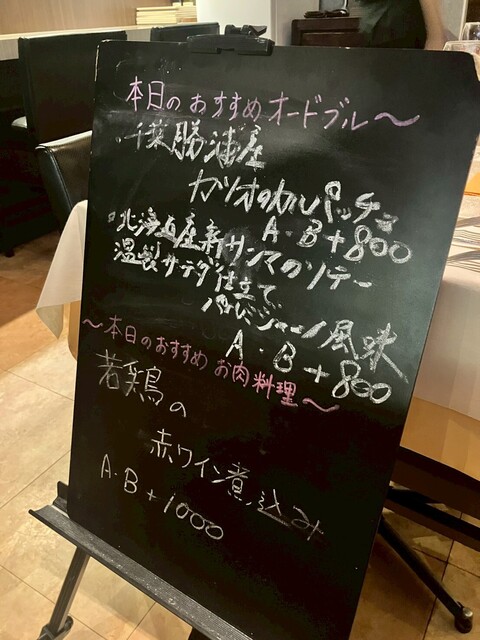 本日のおすすめオードブル〜
・千葉勝浦産
カツオのカルパッチョ
A・B+800
・北海道産新サンマのソテー
温製サラダ仕立て
風味
A・B+800
〜本日のおすすめお肉料理〜
若鶏の
赤ワイン煮込み
A・B+1000